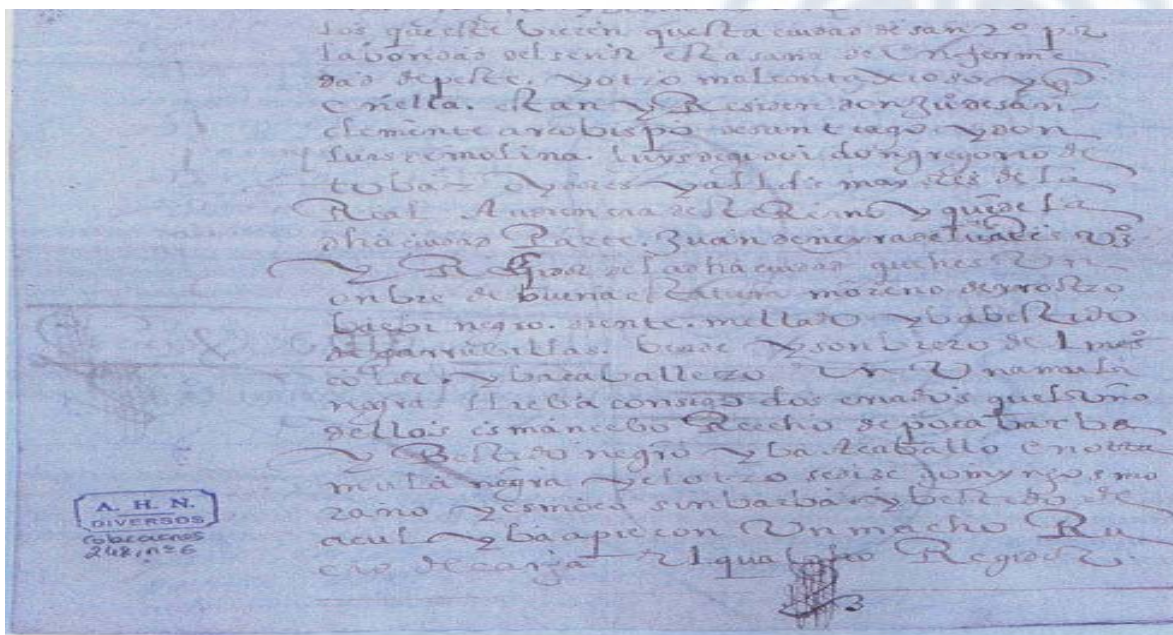 los que este vieren questa ciudad de santo por
la bondad del señor esta sana de enferme
dad de peste. y otro mal contaxioso y q
en ella. estan y Residen don Juº de san
clemente arcobispo de santiago y don
luis de molina. luys de don gregorio de
tobar oydores y alldes mayores de la
Real Audiencia deste Reino y que de la
dha ciudad Parte. Juan vzº
y Regidor de la dha ciudad que hes Un
onbre de buena estatura moreno de rostro
barbi negro. diente. mellado y ba bestido
de y sonbrero de l mesº
color. y ba caballero en Una mula
negra lleba consigo dos criados quel uno
dellos es mancebo Recho de poca barba
y Bestido negro y ba a caballo en otra
mula negra y el otro se dize domyngo smo
zano y es moco sin barba y bestido de
acul y ba a pie con Un macho Ru
cio de carga El qual dho Regidor
A. H. N.
DIVERSOS
Colecciones
248, nº 6